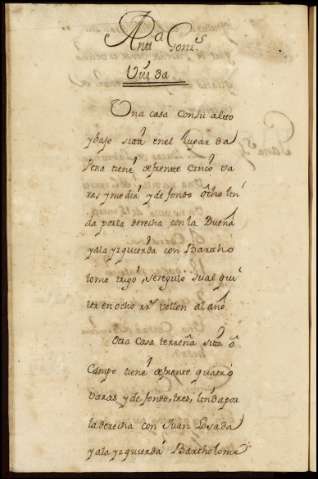 Ana Gomes
Viuda
Una casa con su alto
y bajo sita en el lugar da
tiene de frente cinco va
ras y media y de fondo ocho lin
da por la derecha con la Buena
y a la yzquierda con Bartho
lome trigo, se regulo su alqui
ler en ocho rrs. vellon al año
Otra Casa terreña sita ô
Campo tiene de frente quatro
varas y de fondo, tres, linda por
la derecha con Juan Posada
y a la yzquierda Bartholome